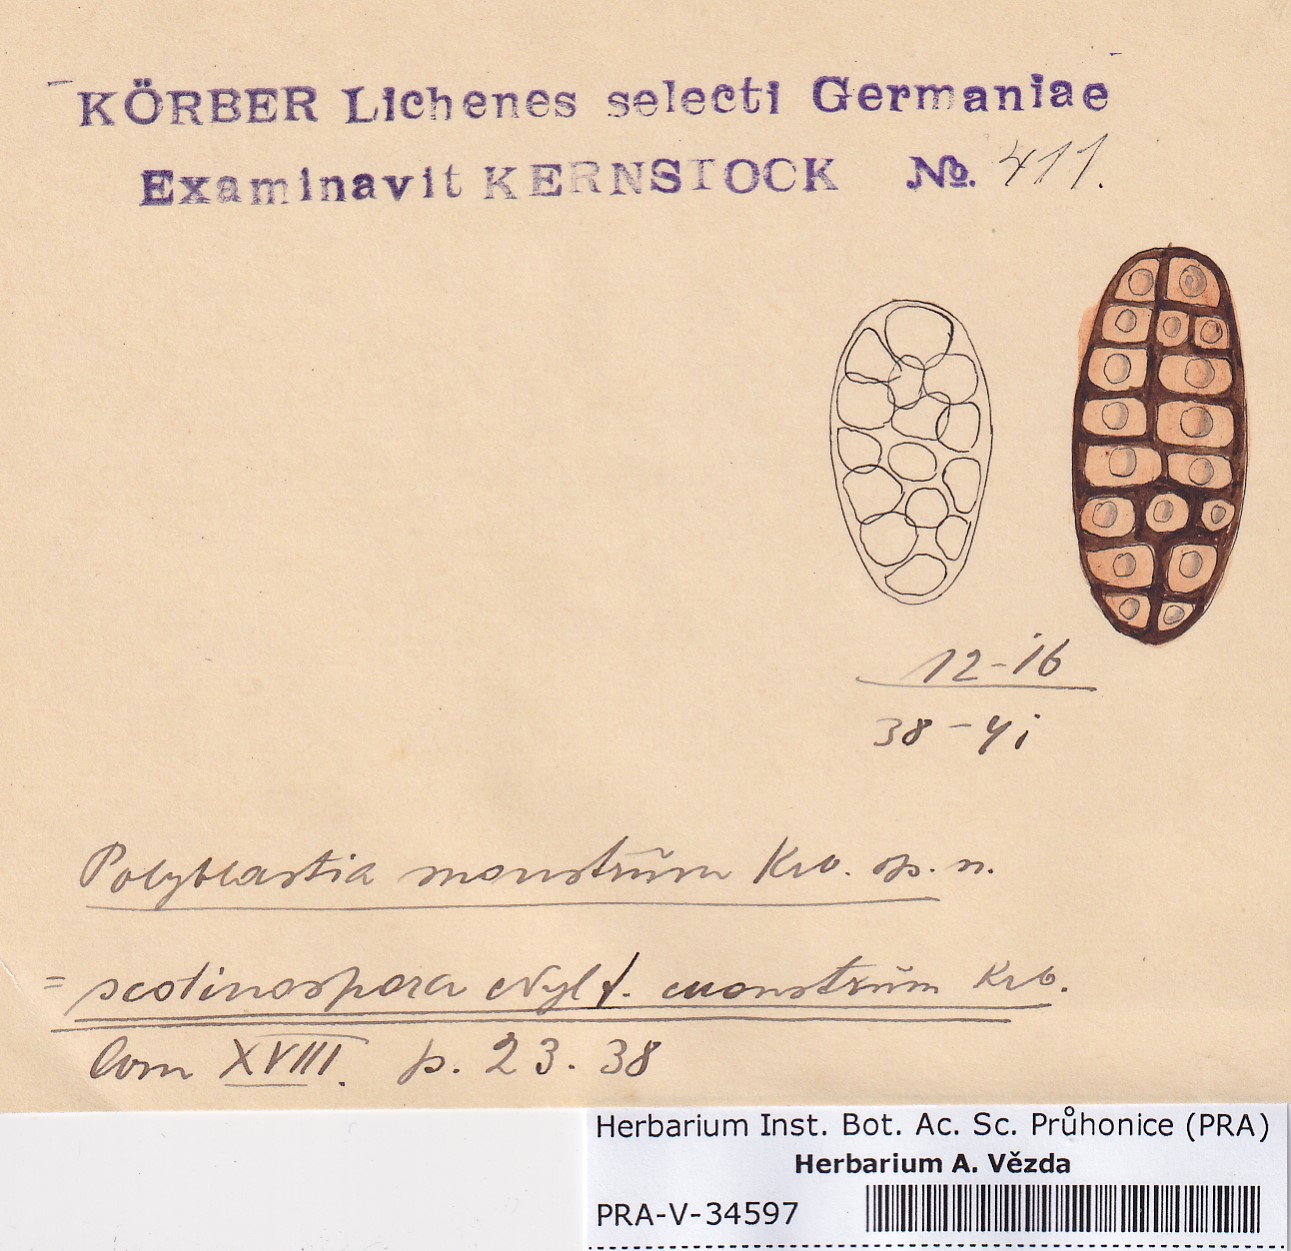 KÖRBER Lichenes selecti Germaniae
Examinavit KERNSTOCK №. 411.
12-16
38-41
Polyblastia monstrŭm Krb. sp. n.
= scotinospora Nyl f. monstrŭm Krb.
Lom XVIII. p. 23. 38
Herbarium Inst. Bot. Ac. Sc. Průhonice (PRA)
Herbarium A. Vězda
PRA-V-34597